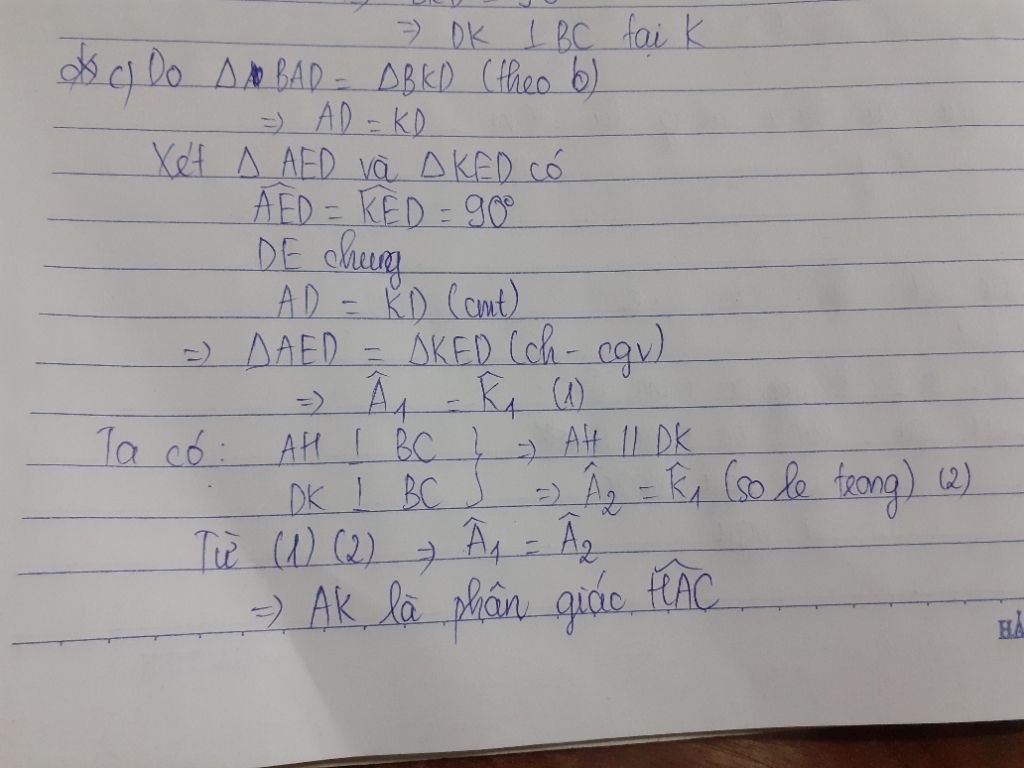 ⇒ DK ⊥ BC tại K
c) Do Δ BAD = ΔBKD (theo b)
⇒ AD = KD
Xét Δ AED và Δ KED có
\widehat{AED} = \widehat{KED} = 90°
DE chung
AD = KD (cmt)
⇒ ΔAED = ΔKED (ch - cgv)
⇒ Â₁ = K̂₁ (1)
Ta có: AH ⊥ BC } ⇒ AH // DK
DK ⊥ BC } ⇒ Â₂ = K̂₁ (so le trong) (2)
Từ (1) (2) ⇒ Â₁ = Â₂
⇒ AK là phân giác \widehat{HAC}
HẢ